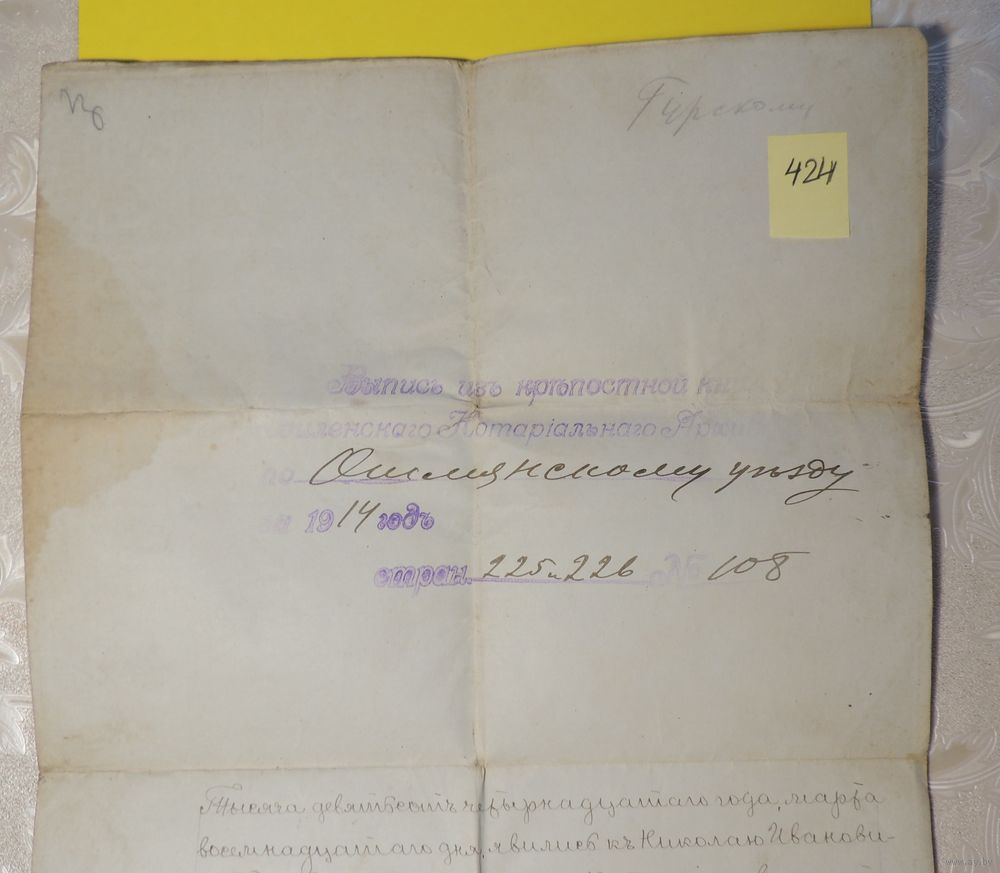 Гурскому
424
Выпись изъ крѣпостной
Виленскаго Нотаріальнаго Архи
по Ошмянскому уѣзду
на 1914 годъ
стран. 225 и 226 № 108
Тысяча девятьсотъ четырнадцатаго года, марта
восемнадцатаго дня, явились къ Николаю Иванови-
www.ay.by